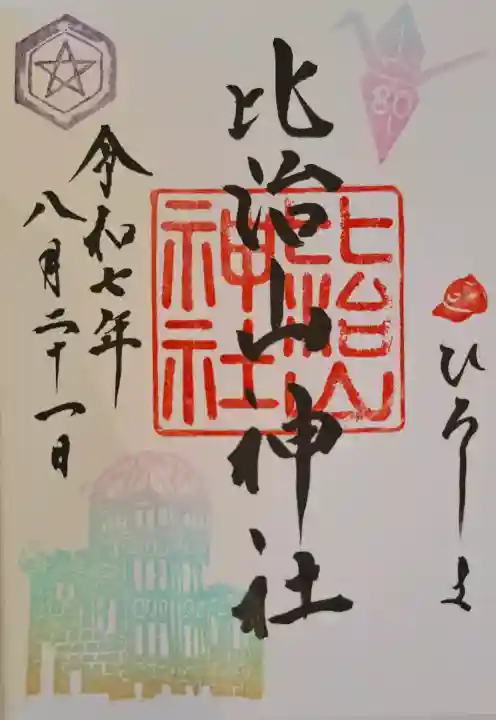 80
ひろしま
比治山神社
比治山
神社
令和七年
八月二十一日